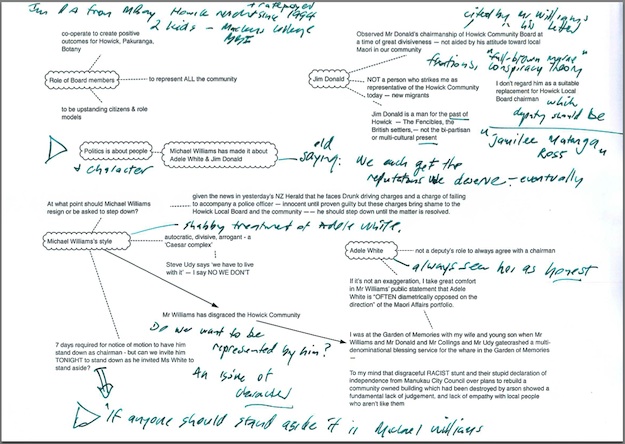 I'm PA from M Bay Howick resident since 1994
ratepayer
2 kids - Macleans College
cited by Mr Williams
in his letter
co-operate to create positive
outcomes for Howick, Pakuranga,
Botany
Role of Board members
to represent ALL the community
to be upstanding citizens & role
models
Observed Mr Donald's chairmanship of Howick Community Board at
a time of great divisiveness — not aided by his attitude toward local
Maori in our community
factions, "full-blown marae"
conspiracy theory
Jim Donald
NOT a person who strikes me as
representative of the Howick Community
today — new migrants
I don't regard him as a suitable
replacement for Howick Local
Board chairman
which
deputy should be
"Jamilee Matenga
Ross"
Jim Donald is a man for the past of
Howick — The Fencibles, the
British settlers, — not the bi-partisan
or multi-cultural present
Politics is about people
+ character
Michael Williams has made it about
Adele White & Jim Donald
old
saying:
We each get the
reputations we deserve - eventually
At what point should Michael Williams
resign or be asked to step down?
given the news in yesterday's NZ Herald that he faces Drunk driving charges and a charge of failing
to accompany a police officer — innocent until proven guilty but these charges bring shame to the
Howick Local Board and the community —— he should step down until the matter is resolved.
shabby treatment of Adele White.
Michael Williams's style
autocratic, divisive, arrogant - a
'Caesar complex'
Steve Udy says 'we have to live
with it' — I say NO WE DON'T
Adele White
not a deputy's role to always agree with a chairman
always seen her as honest
If it's not an exaggeration, I take great comfort
in Mr Williams' public statement that Adele
White is "OFTEN diametrically opposed on the
direction" of the Maori Affairs portfolio.
Mr Williams has disgraced the Howick Community
Do we want to be
represented by him?
An issue of
character
I was at the Garden of Memories with my wife and young son when Mr
Williams and Mr Donald and Mr Collings and Mr Udy gatecrashed a multi-
denominational blessing service for the whare in the Garden of Memories
—
7 days required for notice of motion to have him
stand down as chairman - but can we invite him
TONIGHT to stand down as he invited Ms White to
stand aside?
To my mind that disgraced RACIST stunt and their stupid declaration of
independence from Manukau City Council over plans to rebuild a
community owned building which had been destroyed by arson showed a
fundamental lack of judgement, and lack of empathy with local people
who aren't like them
"If anyone should stand aside it is Michael Williams